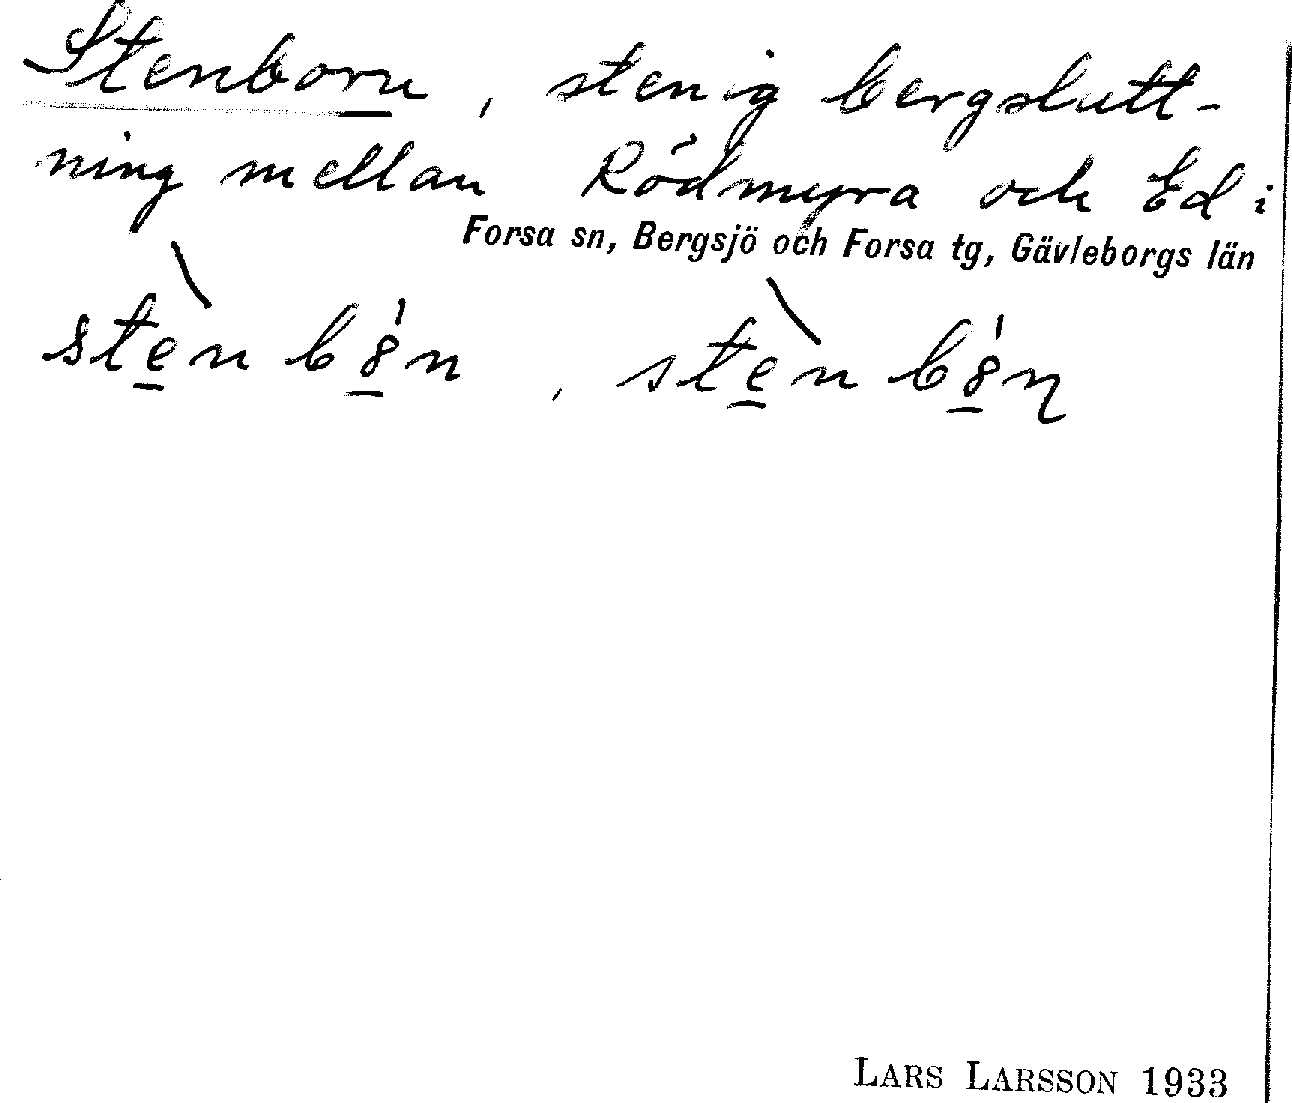 Stenborn, stenig bergslutt-
ning mellan Rödmyra och Ed i
Forsa sn, Bergsjö och Forsa tg, Gävleborgs län
LARS LARSSON 1933